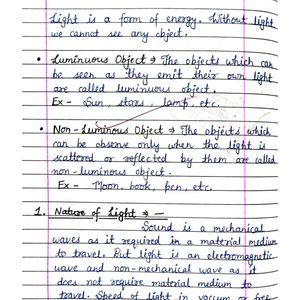 Light is a form of energy. Without light
we cannot see any object.
• Luminuous Object → The objects which can
be seen as they emit their own light
are called luminuous object.
Ex - Sun, stars, lamp, etc.
• Non-Luminous Object → The objects which
can be observe only when the light is
scattered or reflected by them are called
non-luminous object.
Ex - Moon, book, pen, etc.
1. Nature of Light → —
Sound is a mechanical
waves as it required in a material medium
to travel. But light is an electromagnetic
wave and non-mechanical wave as it
does not require material medium to
travel. Speed of light in vacuum or free